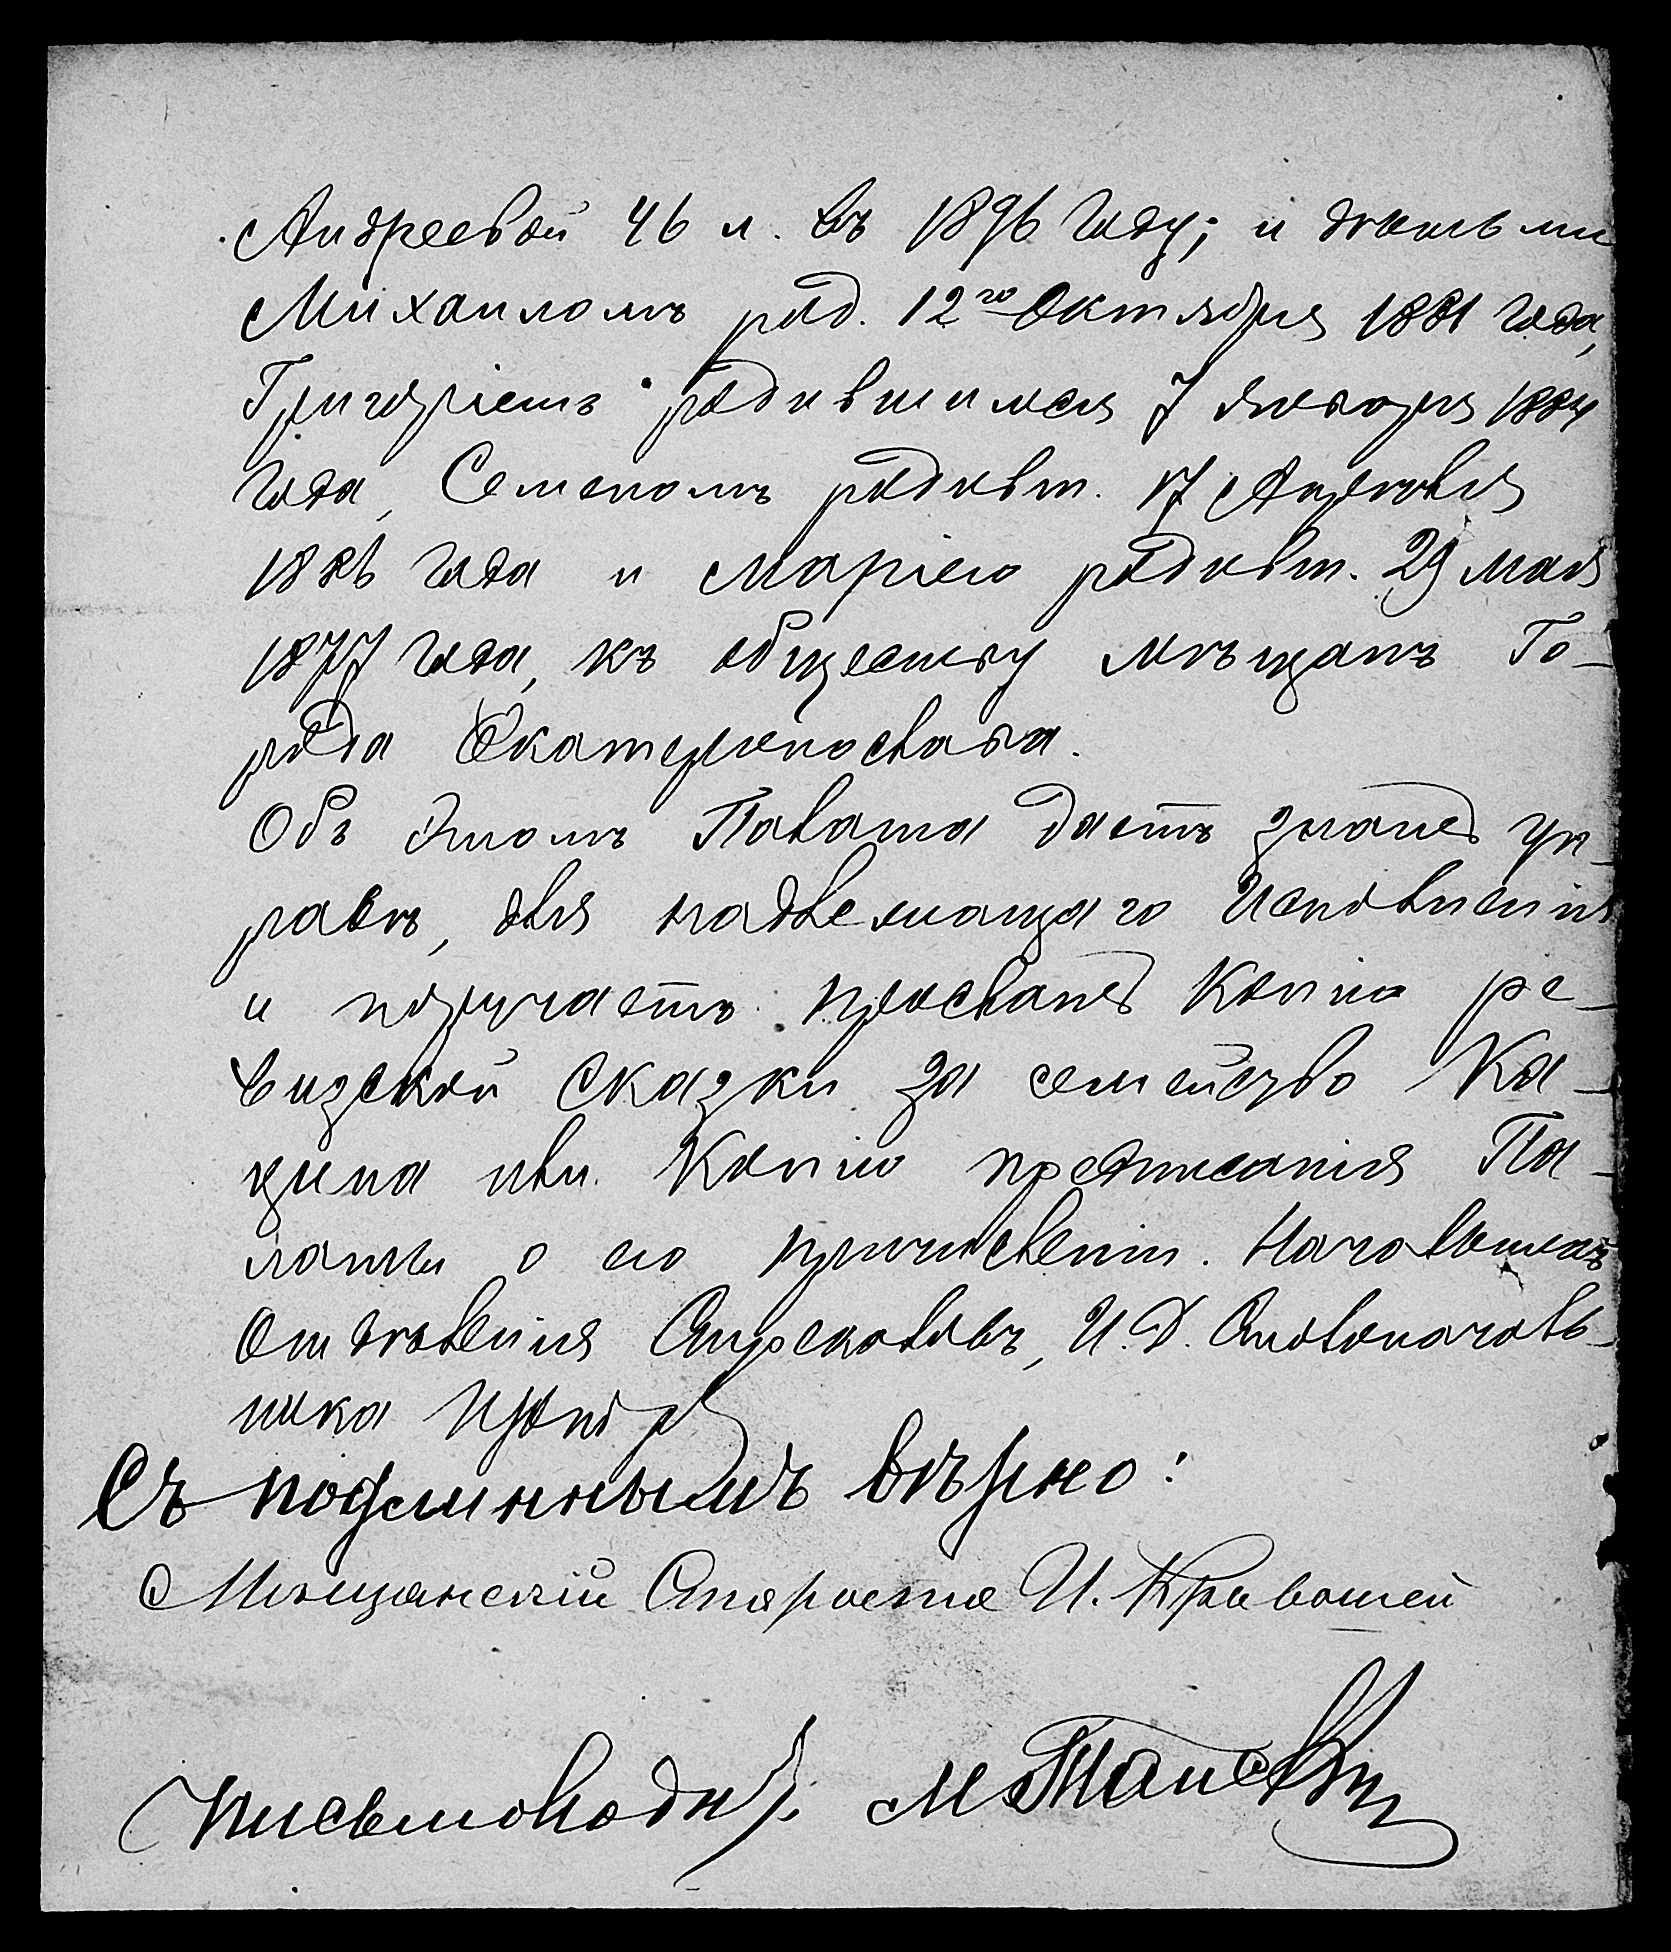 Андреевой 46 л. въ 1896 году; и дѣтьми
Михаиломъ род. 12го Октября 1881 года,
Григоріемъ родившимся 7 января 1884
года, Семеномъ родивш. 17 Апрѣля
1886 года и Маріею родивш. 29 мая
1877 года, къ обществу мѣщанъ Го-
рода Екатеринослава.
Объ этомъ Палата даетъ знать Уп-
равѣ, для надлежащаго Исполненія
и поручаетъ прислать Копію ре-
визской сказки за семейство Ка-
цина или Копію предписанія Па-
латы о его причисленіи. Начальникъ
Отдѣленія Стрекаловъ, И. Д. Столоначаль-
ника
Съ подлиннымъ вѣрно:
Мѣщанскій Староста И. Кривошей
Письмоводит. М.